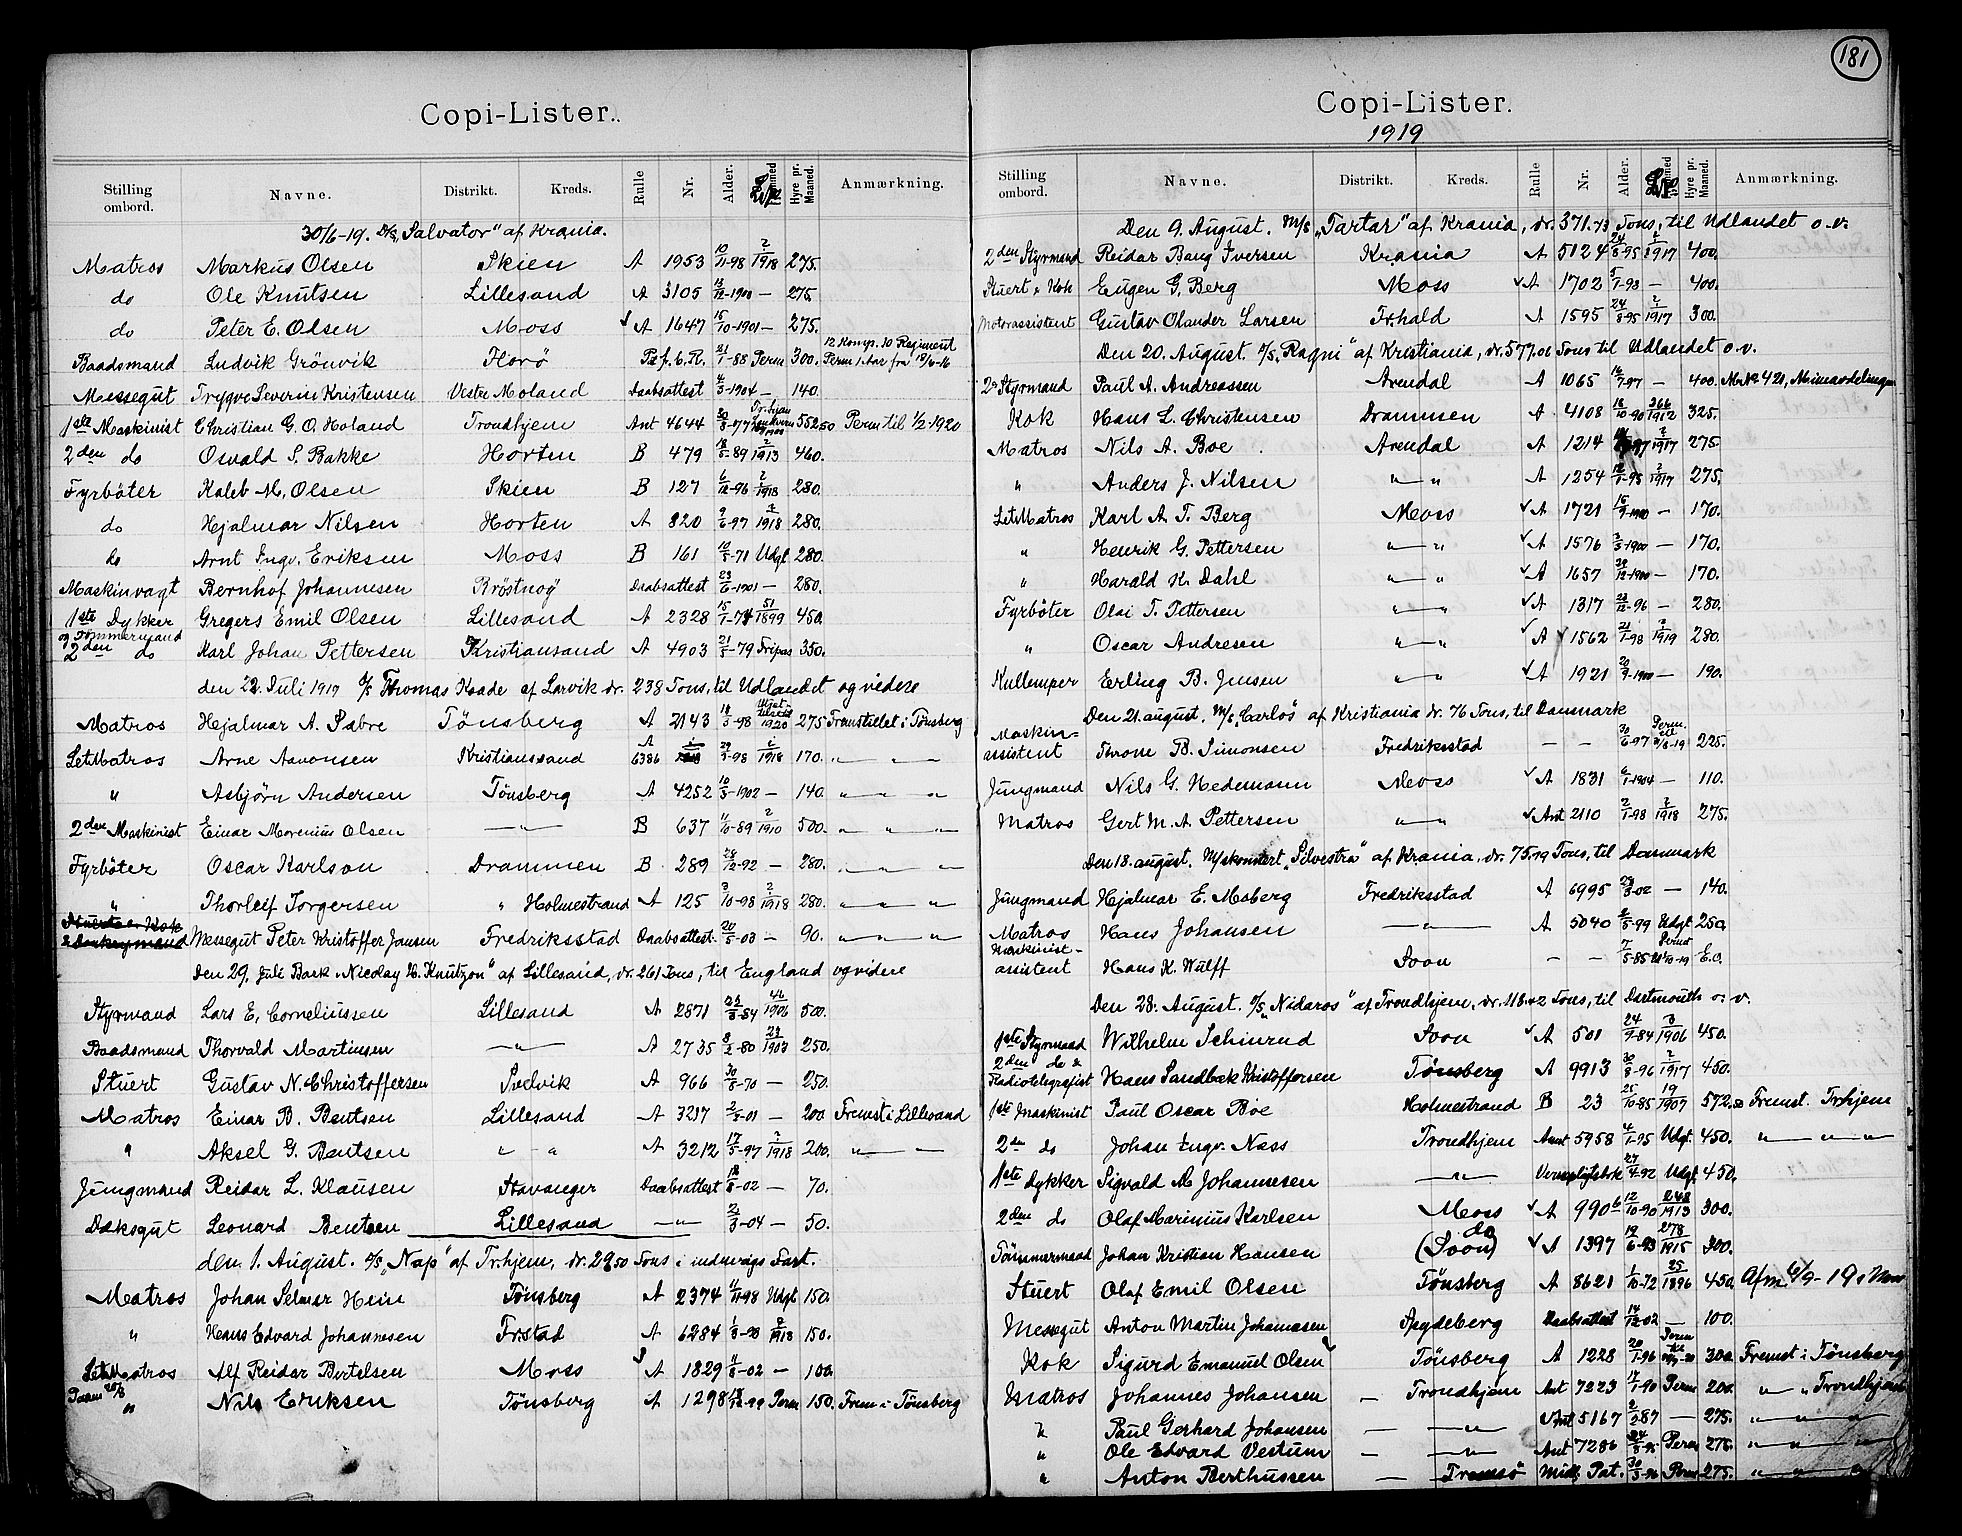 181
Copi-Lister.
Stilling ombord. Navne. Distrikt. Kreds. Rulle Nr. Alder. Hyre pr. Maaned. Anmærkning.
30/6-19. D/S „Salvator" af Krania.
Matros Markus Olsen Skien A 1953 10/11-98 2/1918 275.
do Ole Knutsen Lillesand A 3105 13/12-1900 — 275.
do Peter E. Olsen Moss A 1647 15/10-1901 — 275.
Baadsmand Ludvik Grönvik Florö 21/1-88 Perm 300. 12 Komp. 10 Regiment Perm 1 Aar fra
Messegut Trygve Severin Kristensen Vestre Moland Daabsattest 4/3-1904 — 140.
1ste Maskinist Christian G. O. Holand Trondhjem Ant 4644 552.50 Perm til 1/2-1920
2den do Osvald S. Bakke Horten B 479 18/5-89 2/1913 460.
Fyrböter Kaleb M. Olsen Skien B 127 6/12-96 2/1918 280.
do Hjalmar Nilsen Horten A 820 9/6-97 2/1918 280.
do Arnt Ingv. Eriksen Moss B 161 10/5-71 Udgt 280.
Maskinvagt Bernhof Johannesen Daabsattest 23/6-1901 — 280.
1ste Dykker Gregers Emil Olsen Lillesand A 2328 15/1-74 51/1899 450.
og Tömmermand
2den do Karl Johan Pettersen Kristiansand A 4903 21/5-79 Fripas 350.
den 22. Juli 1919 D/S Thomas Kaade af Larvik dr. 238 Tons, til Udlandet og videre
Matros Hjalmar A. Sabre Tönsberg A 2143 275 Fremstillet i Tönsberg
LetMatros Arne Aanonsen Kristianssand A 6386 29/3-98 2/1918 170. „ — „ —
„ Asbjörn Andersen Tönsberg A 4252 10/5-1902 — 140. „ — „ — „
2den Maskinist Einar Morenius Olsen — „ — B 637 11/10-89 2/1910 500. „ — „ — „
Fyrböter Oscar Karlson Drammen B 289 28/12-92 — 280. „ — „ —
„ Thorleif Torgersen „ Holmestrand A 125 3/10-98 2/1918 280. „ — „ — „
Messegut Peter Kristoffer Jansen Fredriksstad Daabsattest. 20/5-03 — 90. „ — „ — „
Den 29. Juli Bark „Nicolay H. Knutzon" af Lillesand, dr. 261 Tons, til England og videre
Styrmand Lars E. Corneliussen Lillesand A 2871 23/8-84 46/1906 500.
Baadsmand Thorvald Martinsen — „ — A 2735 8/2-80 29/1903 250.
Stuert Gustav N. Christoffersen Svelvik A 966 30/8-70 — 250.
Matros Einar B. Bentsen Lillesand A 3217 2/9-01 — 200 Fremst i Lillesand
„ Aksel G. Bentsen „ — „ A 3212 17/5-97 2/1918 200. „ — „ —
Jungmand Reidar L. Klausen Stavanger Daabsattest 18/8-02 — 70.
Dæksgut Leonard Bentsen Lillesand — „ — 2/3-04 — 50.
den 1. August. D/S „Nap" af Tr.hjem, dr. 29.50 Tons i indenrigs Fart.
Matros Johan Selmer Hein Tönsberg A 2374 11/11-98 Udgt 150.
„ Hans Edvard Johannesen Fr.stad A 6284 150.
LetMatros Alf Reidar Bertelsen Moss A 1829 11/8-02 — 100.
„ Nils Eriksen Tönsberg A 1298 Perm 150. Frem i Tönsberg
Copi-Lister.
1919
Stilling ombord. Navne. Distrikt. Kreds. Rulle Nr. Alder. Hyre pr. Maaned. Anmærkning.
Den 9. August. M/S „Tartar" af Krania, dr. 371.73 Tons, til Udlandet o.v.
2den Styrmand Reidar Bang Iversen Krania A 5124 24/8-95 2/1917 400.
Stuert & Kok Eugen G. Berg Moss A 1702 5/1-98 — 400.
Motorassistent Gustav Olander Larsen Fr.hald A 1595 24/8-95 2/1917 300.
Den 20. August. D/S „Ragni" af Kristiania, dr. 577.06 Tons til Udlandet o.v.
2. Styrmand Paul A. Andreassen Arendal A 1065 16/7-97 — 400. M. № 421, Mineavdelingen
Kok Hans L. Christensen Drammen A 4108 18/10-90 366/1912 325.
Matros Nils A. Boe Arendal A 1214 2/1917 275
„ Anders J. Nilsen „ — „ A 1254 12/1-98 2/1917 275.
LetMatros Karl A. T. Berg Moss A 1721 15/9-1900 — 170.
„ Henrik G. Pettersen „ — „ A 1576 3/3-1900 — 170.
„ Harald K. Dahl „ — „ A 1657 29/12-1900 — 170.
Fyrböter Olai T. Pettersen „ — „ A 1317 23/12-96 — 280.
„ Oscar Andresen „ — „ A 1562 21/1-98 2/1919 280.
Kullemper Erling B. Jensen „ — „ A 1921 20/9-1900 — 190.
Den 21. august. M/S „Carlos" af Kristiania dr. 76 Tons, til Danmark
Maskin-assistent Throne B. Simonsen Fredriksstad — — 30/6-97 Perm. til 225.
Jungmand Nils G. Hedemann Moss A 1831 6/1-1904 — 110.
Matros Gert M. A. Pettersen „ — „ Ant 2110 2/1-98 2/1918 275.
Den 18. august. M/skonnert „Silvestra" af Krania, dr. 75.19 Tons, til Danmark
Jungmand Hjalmar E. Moberg Fredriksstad A 6995 29/3-02 — 140.
Matros Hans Johansen — „ — A 5040 2/5-99 Udgt 250.
Maskinist-assistent Hans K. Wulff Soon — — 7/5-85 E.O.
Den 28. August. D/S „Nidaros" af Trondhjem, dr. 118.42 Tons, til Dartmouth o. v.
1ste Styrmand Wilhelm Schinrud Soon A 501 24/9-84 3/1906 450.
2den do & Radiotelegrafist Hans Sandbæk Kristoffersen Tönsberg A 9913 30/8-96 2/1917 450.
1ste Maskinist Paul Oscar Boe Holmestrand B 23 25/10-85 19/1907 572.50 Fremst. Tr.hjem
2de do Johan Engv. Næss Trondhjem Ant 5958 4/1-95 Udgt. 450. „ — „ — „
1ste Dykker Sigvald M Johannesen — „ — 27/4-92 Udgt 450.
2den do Olaf Marinius Karlsen Moss A 9906 12/10-90 248/1913 300.
Tömmermand Johan Kristian Hansen (Soon) do A 1397 19/6-93 278/1915 300.
Stuert Olaf Emil Olsen Tönsberg A 8621 1/10-72 25/1896 450.
Messegut Anton Martin Johannesen Spydeberg Daabsattest 14/12-02 — 100.
Kok Sigurd Emanuel Olsen Tönsberg A 1228 20/1-96 300. Fremst i Tönsberg
Matros Johannes Johansen — Trondhjem Ant 7223 17/1-90 Perm 200. „ — „ Trondhjem
„ Paul Gerhard Johansen — — „ — Ant 5167 2/2-87 — 275. „ — „ — „
„ Ole Edvard Vestum — — „ — Ant 7286 Perm 275. „ — „ — „
„ Anton Berthussen — Tromsö Mill. Pat. 30/3-96 Perm 275. „ — „ — „